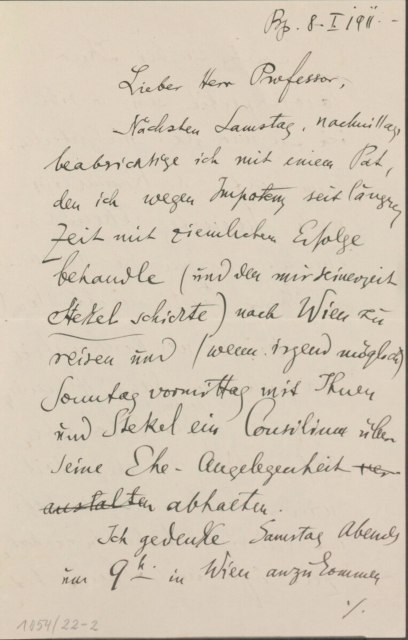 Bp. 8-I 1911.-
Lieber Herr Professor,
Nächsten Samstag, nachmittags
beabsichtige ich mit einem Pat,
den ich wegen Impotenz seit längrer
Zeit mit ziemlichem Erfolge
behandle (und den mir seinerzeit
Stekel schickte) nach Wien zu
reisen und (wenn irgend möglich)
Sonntag vormittag mit Ihnen
und Stekel ein Consilium über
seine Ehe-Angelegenheit ver-
anstalten abhalten.
Ich gedenke Samstag Abends
um 9 h. in Wien anzukommen
./.
1054/22-2